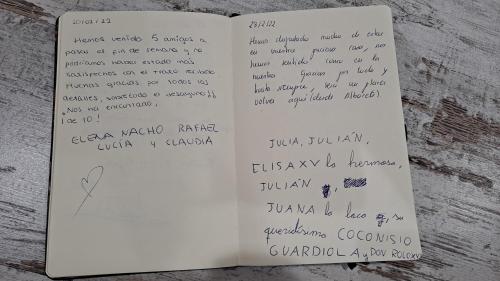 20/02/22
Hemos venido 5 amigos a
pasar el fin de semana y no
podríamos haber estado más
satisfechos con el trato recibido
Muchas gracias por todos los
detalles, sobretodo el desayuno!!
¡Nos ha encantado,
¡de 10!
ELENA NACHO RAFAEL
LUCÍA Y CLAUDIA
28/2/22
Hemos disfrutado mucho de estar
en vuestra preciosa casa, nos
hemos sentido como en la
nuestra. Gracias por todo y
hasta siempre, será un placer
volver aquí (desde
JULIA, JULIÁN,
ELISA XV la hermosa,
JULIÁN y,
JUANA la loca y, su
queridísimo COCONISIO
GUARDIOLA y DON ROLO XV